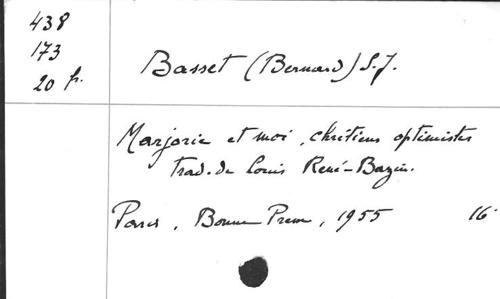 438
173
20 fr.
Basset (Bernard) S.J.
Marjorie et moi, chrétiens optimistes
trad. de Louis René-Bazin.
Paris, Bonne Presse, 1955 16